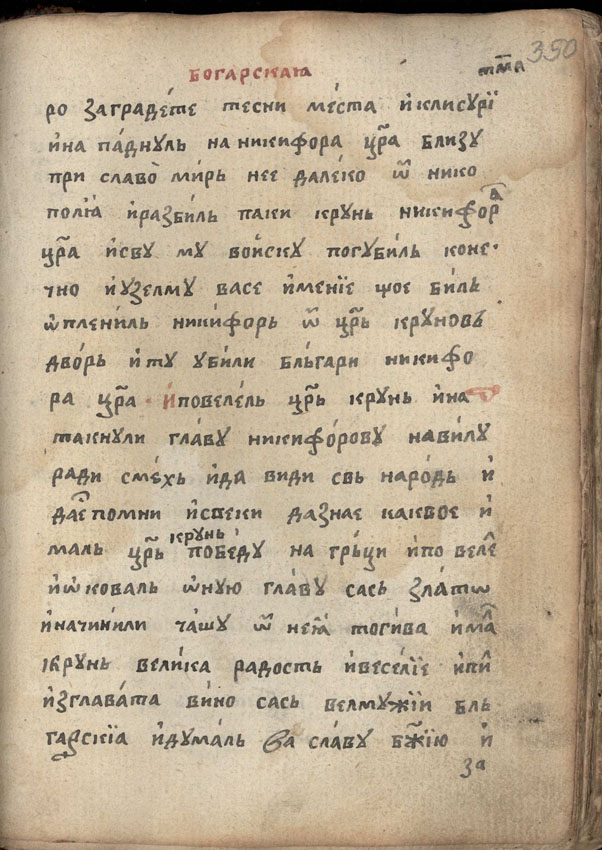 БОГАРСКАꙖ
т҃м҃а
350
ро заградéте тесни мéста и҆клисурїи
и҆на пáднуль на никифора цр҃а близу
при славо̀ мирь нее далéко ѿ нико
полїа и҆разби́ль паки крунь никифора
цр҃а и҆сву му во́йску погуби́ль коне
чно и҆узелму васе и҆мени́е що е били
ѡ҆плени́ль ники́форь ѿ цр҃ь круновъ
двóрь и҆ту уби́ли бльгари никифо
ра цр҃а · и҆повелéль цр҃ь крунь и҆на
такнули глáву никифóрову навилу
ради смехь и҆да види свь наро́дь и҆
да е помни и҆свеки дазнае какво е и҆
маль цр҃ь крунь побéду на грьци и҆по велел
и҆ѡ҆ковáль ѡ҆ную главу сась злáтѡ
и҆начини́ли чáшу ѿ нею̀ тоги́ва и҆мал
крунь вели́ка радость и҆весéлїе и҆пил
и҆зглавáта ви́но сась велмужїи бль
гарскїа и҆думáль ва слáву бж҃їю и҆
за